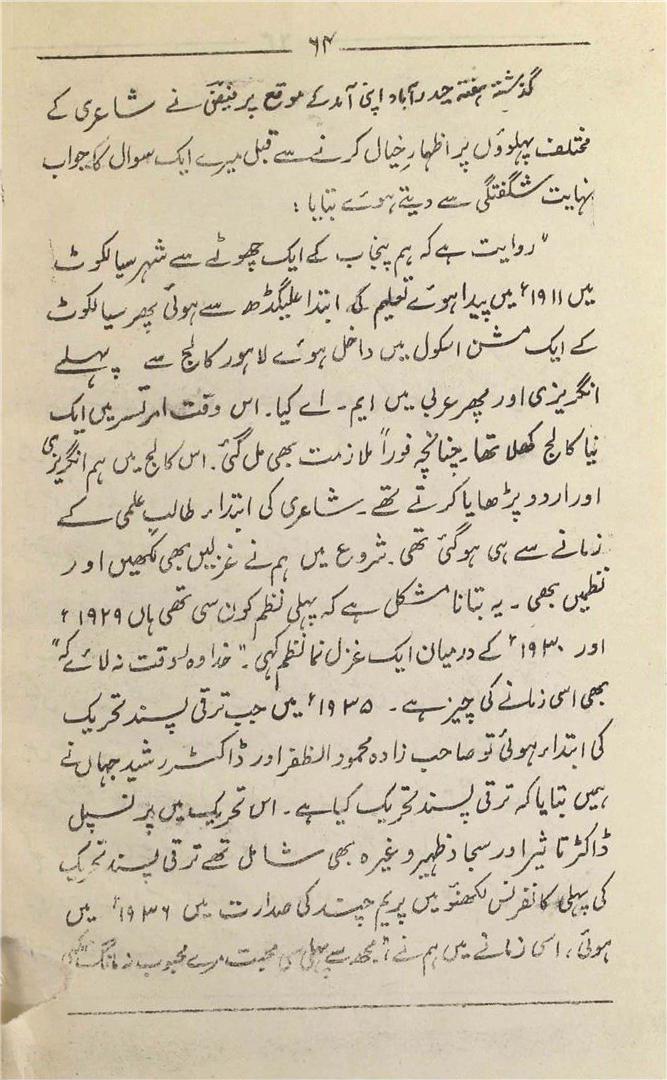 ۶۴
گذشتہ ہفتہ حیدرآباد اپنی آمد کے موقع پر فیضؔ نے شاعری کے
مختلف پہلوؤں پر اظہارِ خیال کرنے سے قبل میرے ایک سوال کا جواب
نہایت شگفتگی سے دیتے ہوئے بتایا :
"روایت ہے کہ ہم پنجاب کے ایک چھوٹے سے شہر سیالکوٹ
میں ۱۹۱۱ء میں پیدا ہوئے تعلیم کی ابتدا علیگڈھ سے ہوئی پھر سیالکوٹ
کے ایک مشن اسکول میں داخل ہوئے لاہور کالج سے پہلے
انگریزی اور پھر عربی میں ایم۔ اے کیا۔ اس وقت امرتسر میں ایک
نیا کالج کھلا تھا چنانچہ فوراً ملازمت بھی مل گئی۔ اس کالج میں ہم انگریزی
اور اردو پڑھایا کرتے تھے۔ شاعری کی ابتداء طالبِ علمی کے
زمانے سے ہی ہوگئی تھی۔ شروع میں ہم نے غزلیں بھی لکھیں اور
نظمیں بھی۔ یہ بتانا مشکل ہے کہ پہلی نظم کون سی تھی ہاں ۱۹۲۹ء
اور ۱۹۳۰ء کے درمیان ایک غزل نما نظم کہی۔ "خدا وہ وقت نہ لائے کہ"
بھی اسی زمانے کی چیز ہے۔ ۱۹۳۵ء میں جب ترقی پسند تحریک
کی ابتداء ہوئی تو صاحب زادہ محمود الظفر اور ڈاکٹر رشید جہاں نے
ہمیں بتایا کہ ترقی پسند تحریک کیا ہے۔ اس تحریک میں پرنسپل
ڈاکٹر تاثیر اور سجاد ظہیر وغیرہ بھی شامل تھے ترقی پسند تحریک
کی پہلی کانفرنس لکھنؤ میں پریم چند کی صدارت میں ۱۹۳۶ء میں
ہوئی، اسی زمانے میں ہم نے "مجھ سے پہلی سی محبت مرے محبوب نہ مانگ"